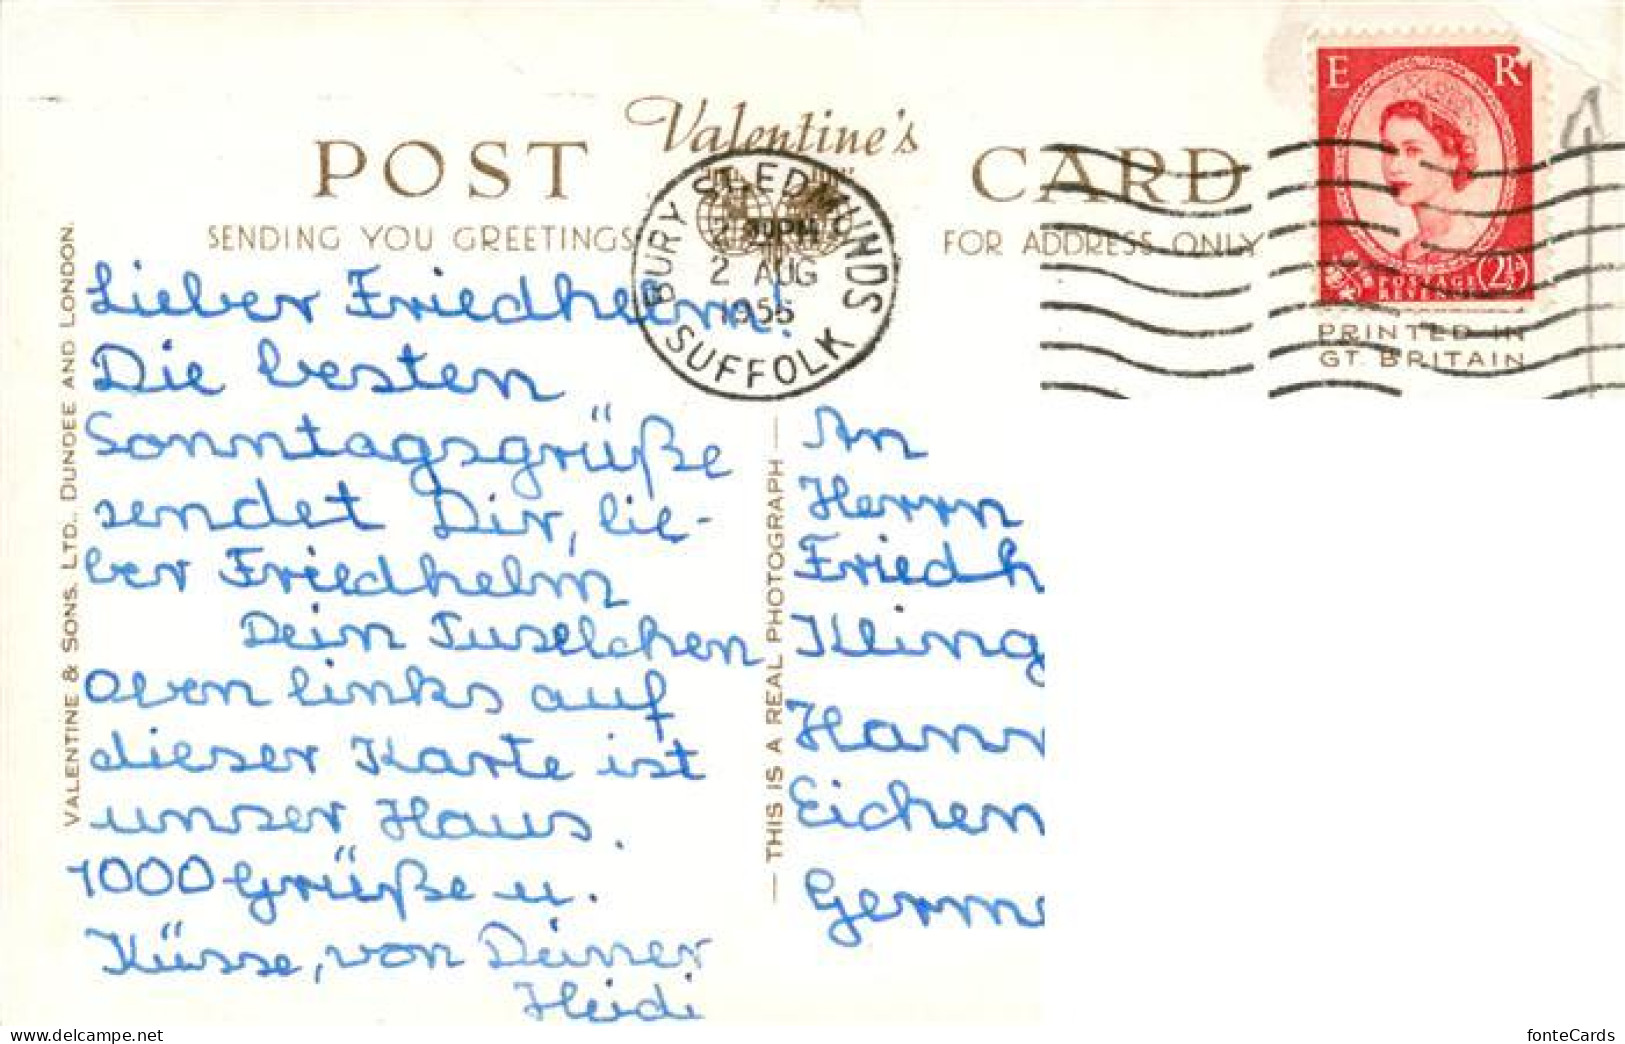 Valentine's
POST CARD
SENDING YOU GREETINGS
FOR ADDRESS ONLY
BURY ST. EDMUNDS
PM
2 AUG
SUFFOLK
E R
POSTAGE
REVENUE
2½
PRINTED IN
GT. BRITAIN
VALENTINE & SONS. LTD., DUNDEE AND LONDON.
Lieber Friedhelm!
Die besten
Sonntagsgrüße
sendet Dir, lie-
ber Friedhelm
Dein Tuselchen
oben links auf
dieser Karte ist
unser Haus.
1000 Grüße u.
Küsse, von Deiner
Heidi
— THIS IS A REAL PHOTOGRAPH —
An
Herrn
Friedh
Kling
Hann
Eichen
Germ
fonteCards